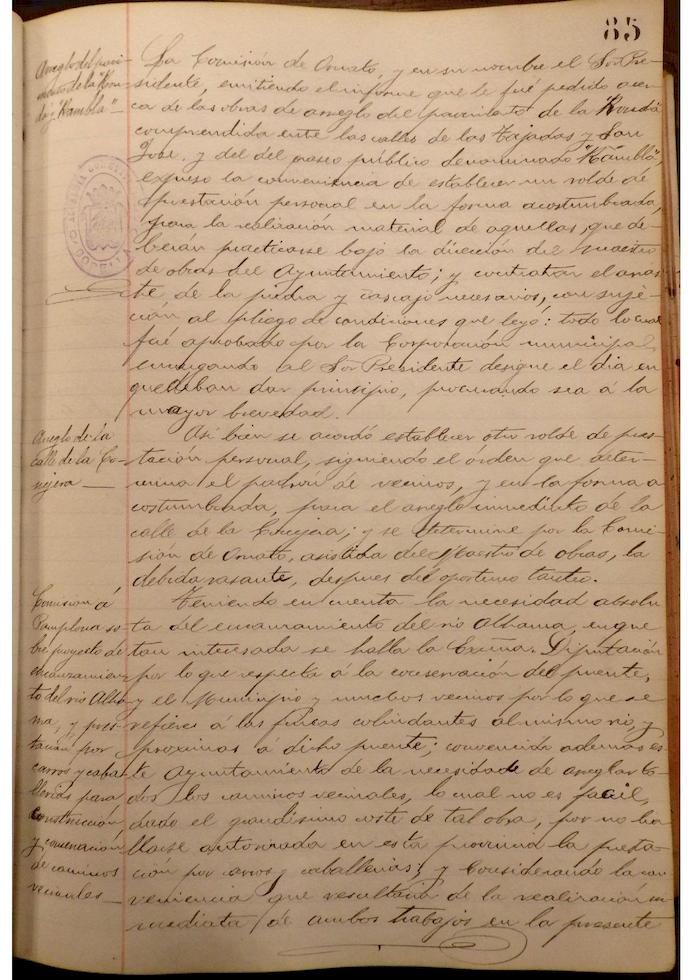 85
Arreglo del pavi-
mento de la "Ron-
da" y "Rambla"_
La Comisión de Ornato, y en su nombre el Sor Pre-
sidente, emitiendo el informe que le fué pedido acer-
ca de las obras de arreglo del pavimento de la "Ronda"
comprendida entre las calles de las Tajadas y San
José, y del del paseo público denominado "Rambla",
expuso la conveniencia de establecer un rolde de
prestación personal en la forma acostumbrada,
para la realización material de aquellas, que de-
berán practicarse bajo la dirección del maestro
de obras del Ayuntamiento; y contratar el arras-
tre de la piedra y cascajo necesarios, con suje-
ción al pliego de condiciones que leyó: todo lo cual
fué aprobado por la Corporación municipal
encargando al Sor Presidente designe el dia en
que deban dar principio, procurando sea á la
mayor brevedad.
Arreglo de la
calle de la Co-
nejera_
Asi bien se acordó establecer otro rolde de pres-
tación personal, siguiendo el órden que deter-
mina el padrón de vecinos, y en la forma a
costumbrada, para el arreglo inmediato de la
calle de la Conejera; y se determine por la Comi-
sion de Ornato, asistida del Maestro de obras, la
debida rasante, despues del oportuno tanteo.
Comision á
Pamplona so-
bre proyecto de
encauzamien-
to del rio Alha-
ma, y pres-
tación por
carros y caba-
llerias para
construcción
y conservación
de caminos
vecinales_
Teniendo en cuenta la necesidad absolu-
ta del encauzamiento del rio Alhama, en que
tan interesada se halla la Excma. Diputación
por lo que respecta á la conservación del puente,
y el Municipio y muchos vecinos por lo que se
refiere á las fincas colindantes al mismo rio, y
proximas á dicho puente; convencido ademas es-
te Ayuntamiento de la necesidad de arreglar to-
dos los caminos vecinales, lo cual no es facil,
dado el grandisimo coste de tal obra, por no ha
llarse autorizada en esta provincia la presta-
ción por carros y caballerias; y Considerando la con
veniencia que resultaria de la realización in
mediata de ambos trabajos en la presente